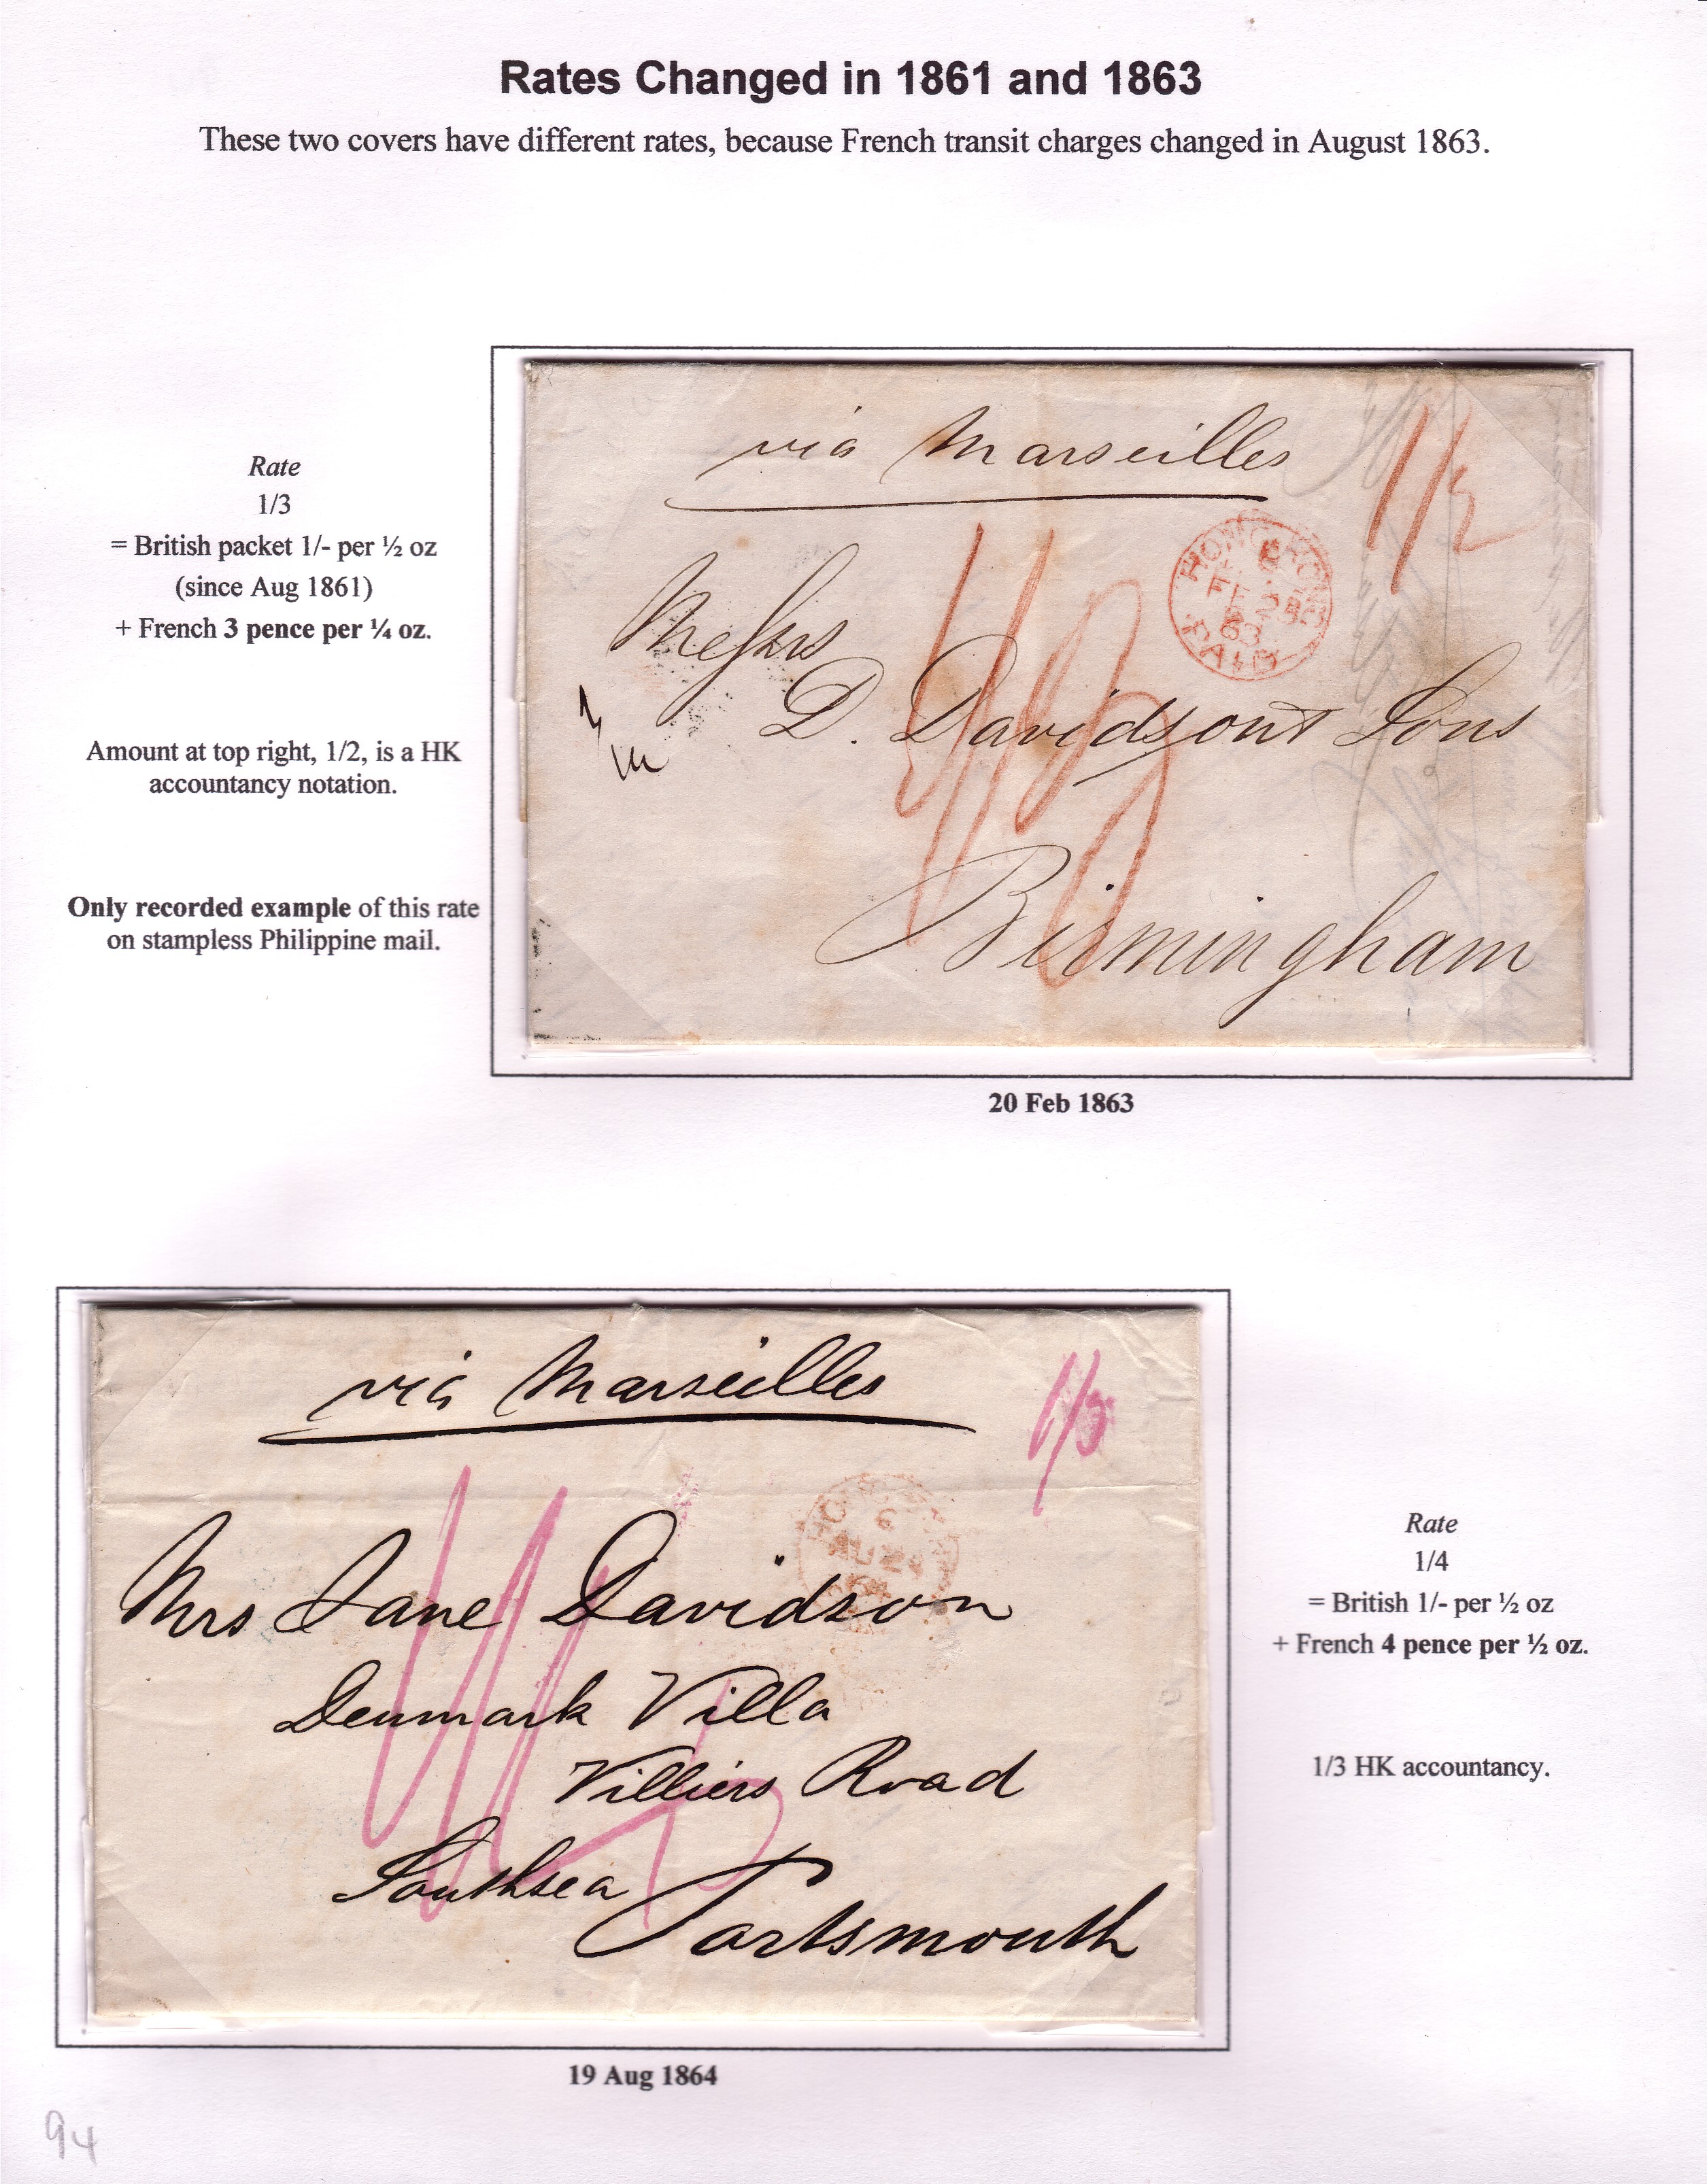 Rates Changed in 1861 and 1863
These two covers have different rates, because French transit charges changed in August 1863.
Rate
1/3
= British packet 1/- per ½ oz
(since Aug 1861)
+ French 3 pence per ¼ oz.
Amount at top right, 1/2, is a HK
accountancy notation.
Only recorded example of this rate
on stampless Philippine mail.
via Marseilles
1/2
HONG KONG
PAID
Messrs
D. Davidson & Sons
1/3
Birmingham
20 Feb 1863
via Marseilles
1/3
Mrs Jane Davidson
Denmark Villa
Villiers Road
Southsea
Portsmouth
1/4
19 Aug 1864
Rate
1/4
= British 1/- per ½ oz
+ French 4 pence per ½ oz.
1/3 HK accountancy.
94